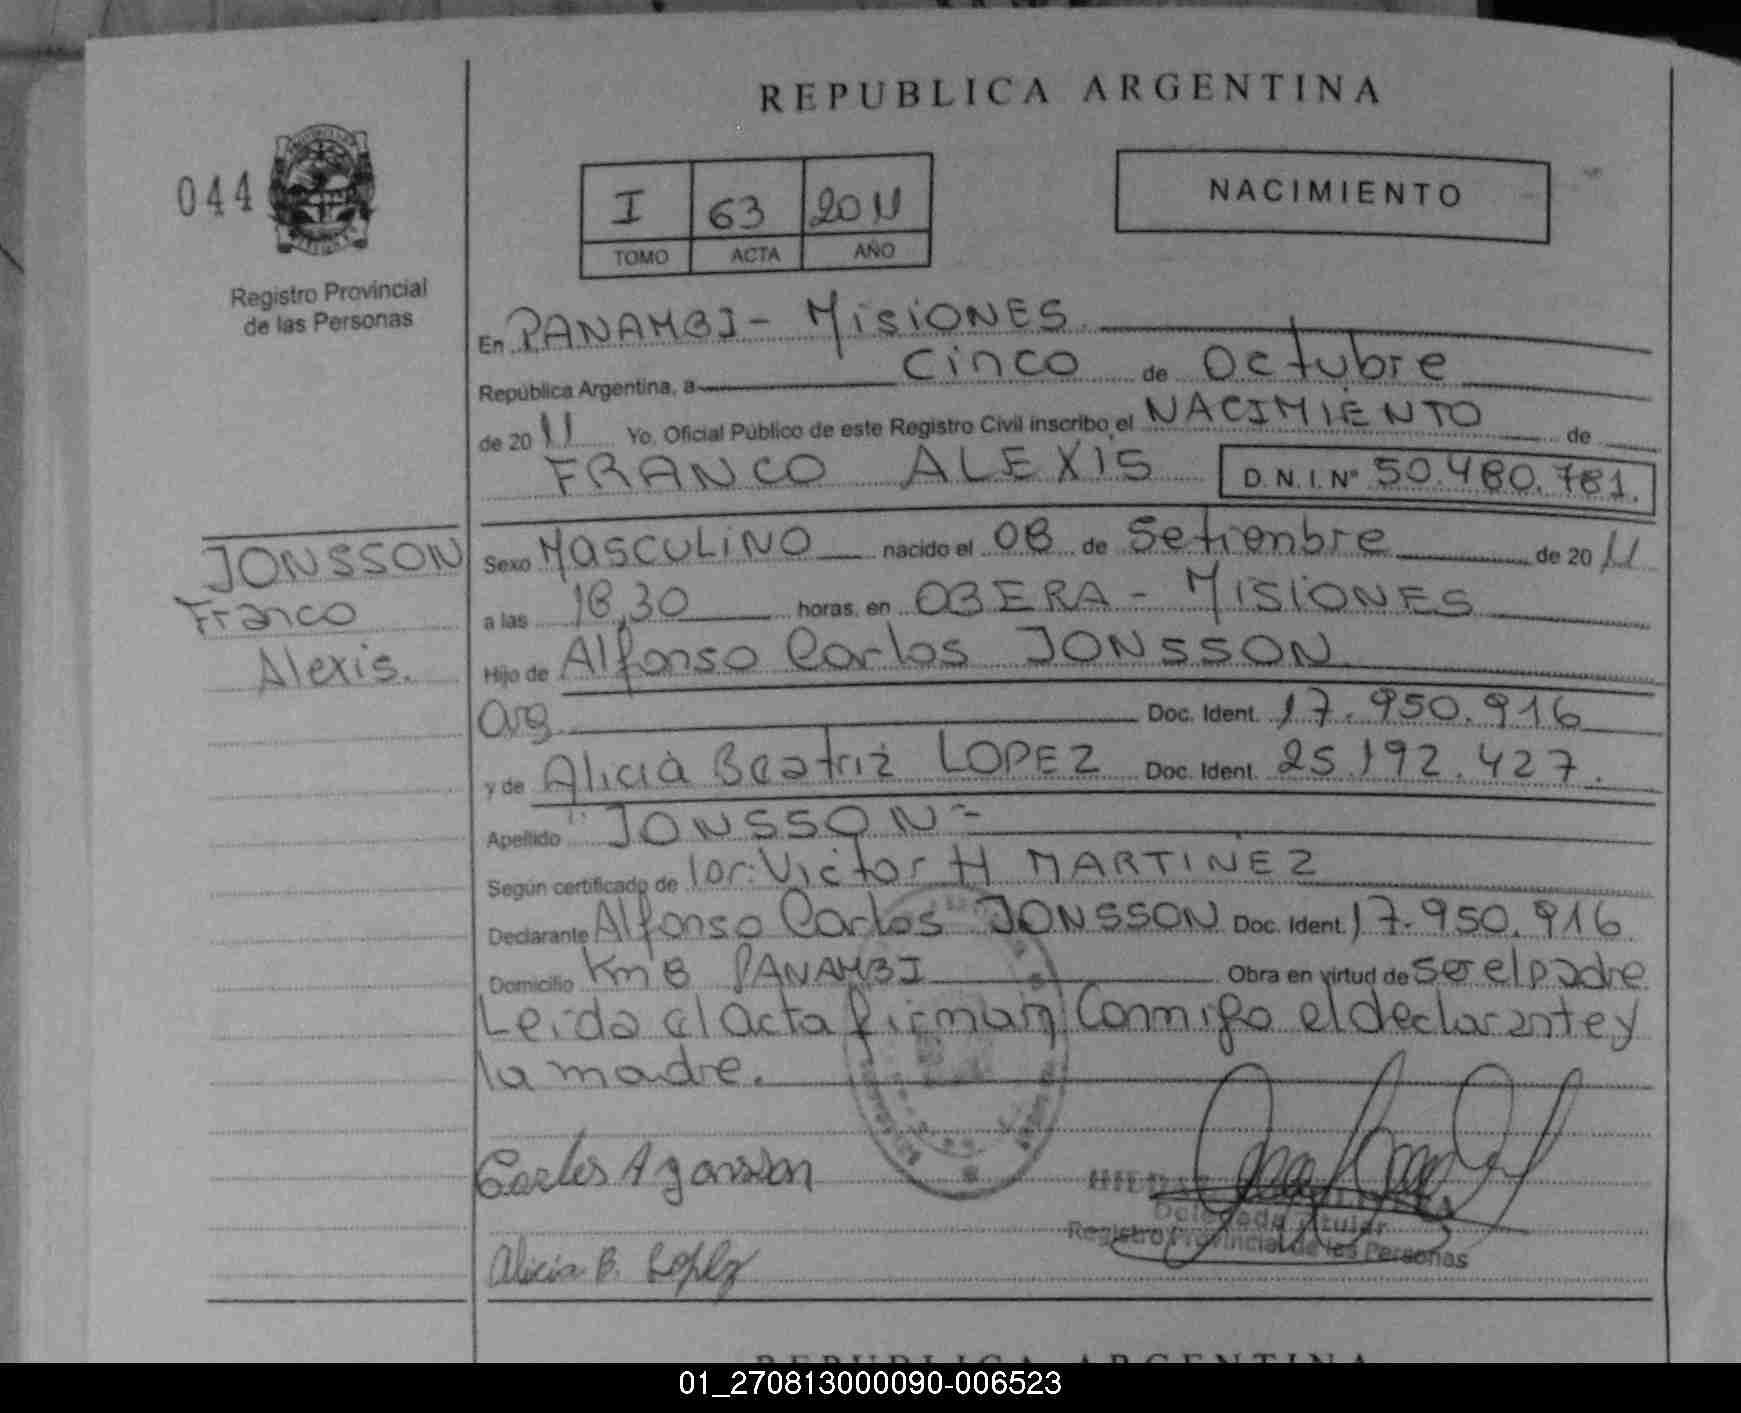 REPUBLICA ARGENTINA
044
Registro Provincial
de las Personas
I 63 2011
TOMO ACTA AÑO
NACIMIENTO
En PANAMBI - MISIONES
República Argentina, a cinco de Octubre
de 2011 Yo, Oficial Público de este Registro Civil inscribo el NACIMIENTO de
FRANCO ALEXIS D.N.I. Nº 50.480.781.
JONSSON
Franco
Alexis.
Sexo MASCULINO nacido el 08 de Setiembre de 2011
a las 18,30 horas, en OBERA - MISIONES
Hijo de Alfonso Carlos JONSSON
Arg Doc. Ident. 17.950.916
y de Alicia Beatriz LOPEZ Doc. Ident. 25.192.427.
Apellido "JONSSON"
Según certificado de Victor H MARTINEZ
Declarante Alfonso Carlos JONSSON Doc. Ident. 17.950.916
Domicilio Km 8 PANAMBI Obra en virtud de ser el padre
Leida el Acta firman Conmigo el declarante y
la madre.
Carlos A Jonsson
Alicia B. Lopez
Delegada Titular
Registro Provincial de las Personas
REPUBLICA ARGENTINA
01_270813000090-006523